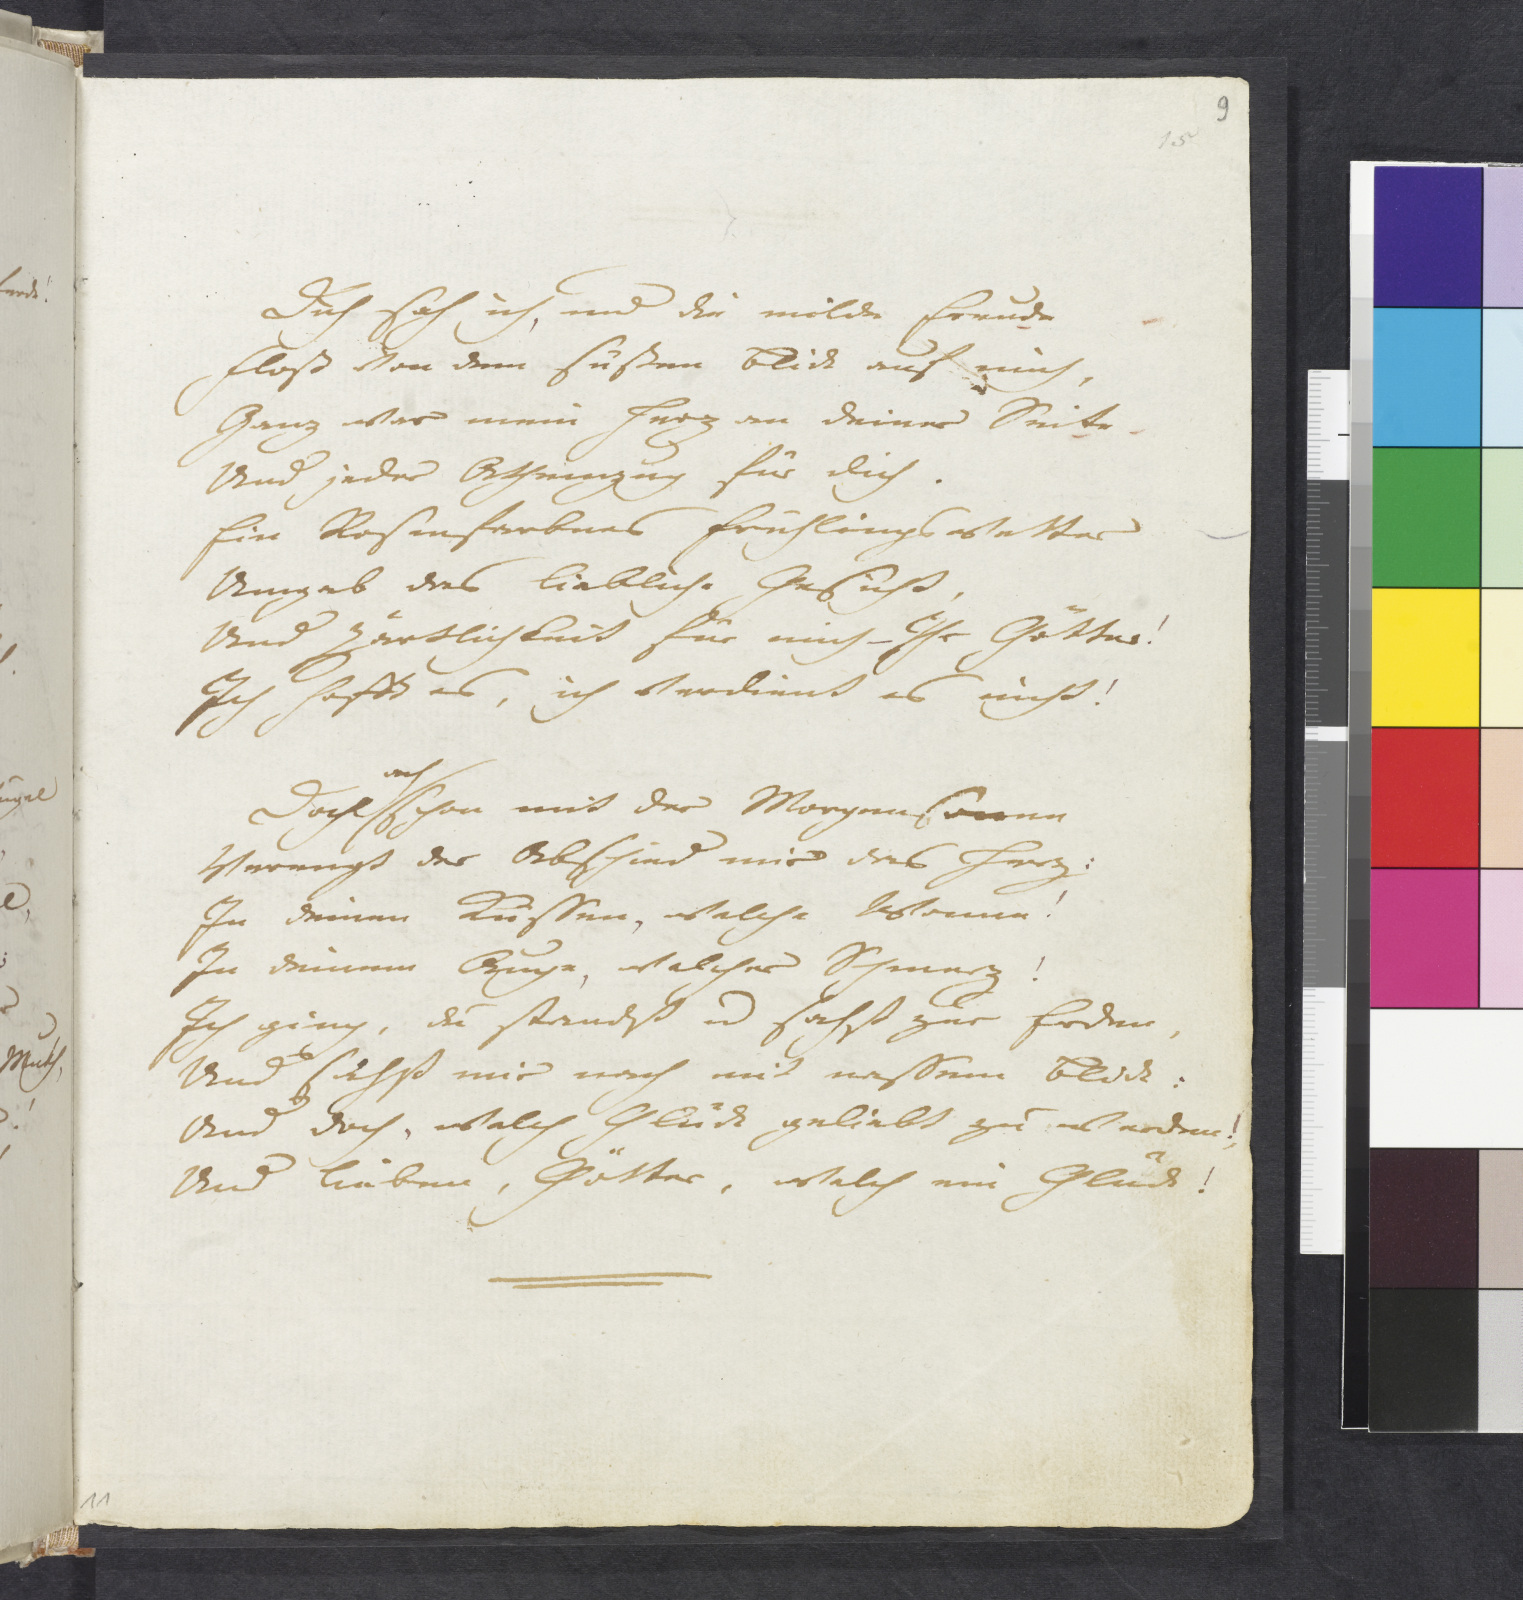 9
15
Dich sah ich, und die milde Freude
Floß von dem süßen Blick auf mich,
Ganz war mein Herz an deiner Seite
Und jeder Athemzug für dich.
Ein Rosenfarbnes Frühlingswetter
Umgab das liebliche Gesicht,
Und Zärtlichkeit für mich – Ihr Götter!
Ich hofft es, ich verdient es nicht!
ach
Doch schon mit der Morgensonne
Verengt der Abschied mir das Herz:
In deinen Küssen, welche Wonne!
In deinem Auge, welcher Schmerz!
Ich ging, du standst u sahst zur Erden,
Und sahst mir nach mit nassem Blick:
Und doch, welch Glück geliebt zu werden!
Und lieben, Götter, welch ein Glück!
11
Muth,